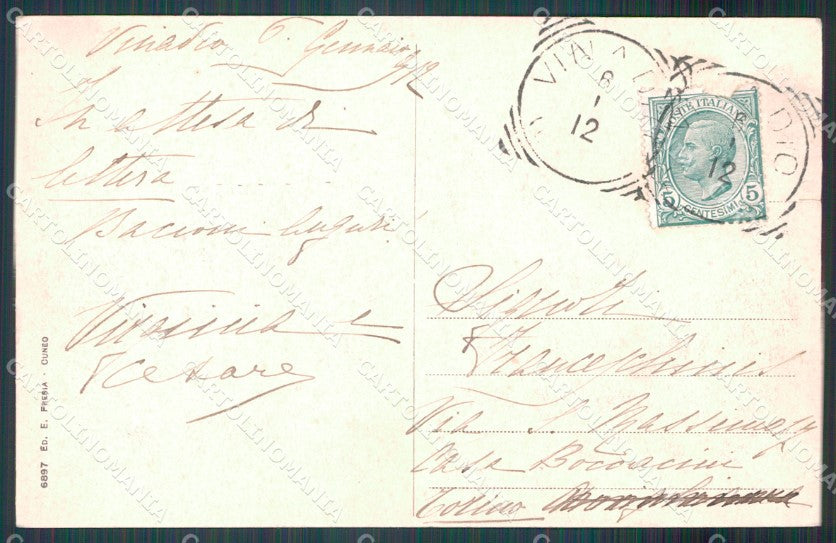 Vinadio 6 Gennaio 912
In attesa di
lettera . . . . . .
Bacioni Auguri
Virginia e
Cesare
6897 ED. E. FRESIA - CUNEO
VINADIO
6
1
12
POSTE ITALIANE
5 CENTESIMI 5
VINADIO
6
1
12
Signori
Franceschinis
Via S. Massimo
Casa
Torino
CARTOLINOMANIA